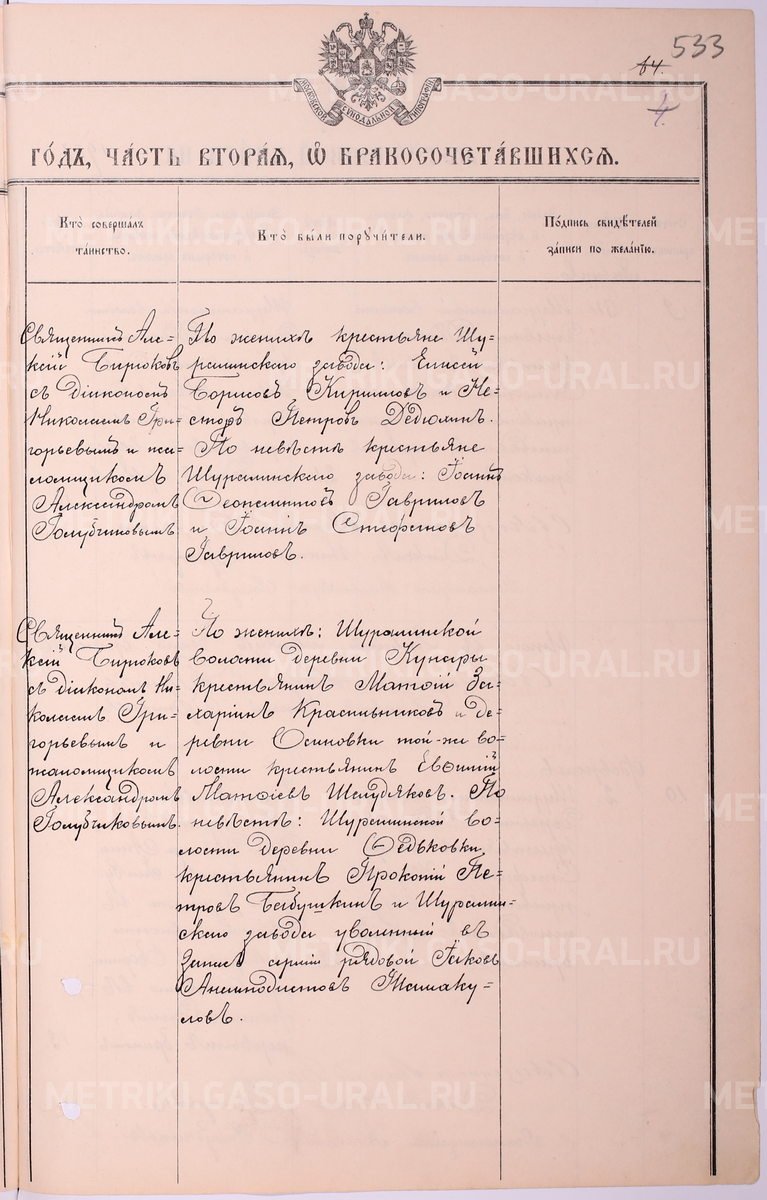 533
64.
4.
МОСКОВСКОЙ СѴНОДАЛЬНОЙ ТИПОГРАФІИ
ГО́ДЪ, ЧА́СТЬ ВТОРА́Ѧ, Ѽ БРАКОСОЧЕТА́ВШИХСѦ.
Кто̀ соверша́лъ
та́инство.
Кто̀ бы́ли порꙋчи́тели.
По́дпись свидѣ́телей
за́писи по жела́нїю.
Священникъ Але-
ксій Бирюковъ
съ діакономъ
Николаемъ Гри-
горьевымъ и пса-
ломщикомъ
Александромъ
Голубчиковымъ
По женихѣ крестьяне Шу-
ралинскаго завода: Елисей
Борисовъ Кириловъ и Не-
сторъ Петровъ Дедюлинъ.
По невѣстѣ крестьяне
Шуралинскаго завода: Іоаннъ
Феоктистовъ Гавриловъ
и Іоаннъ Стефановъ
Гавриловъ.
Священникъ Але-
ксій Бирюковъ
съ діакономъ Ни-
колаемъ Гри-
горьевымъ и
псаломщикомъ
Александромъ
Голубчиковымъ.
По женихѣ: Шуралинской
волости деревни Кунары
крестьянинъ Матѳій За-
харіинъ Красильниковъ и де-
ревни Осиновки той-же во-
лости крестьянинъ Евѳимій
Матѳіевъ Шелудяковъ. По
невѣстѣ: Шуралинской во-
лости деревни Федьковки,
крестьянинъ Прокопій Пе-
тровъ Бабушкинъ и Шуралин-
скаго завода уволенный въ
запасъ арміи рядовой Іаковъ
Анемподистовъ Темаку-
ловъ.
METRIKI.GASO-URAL.RU